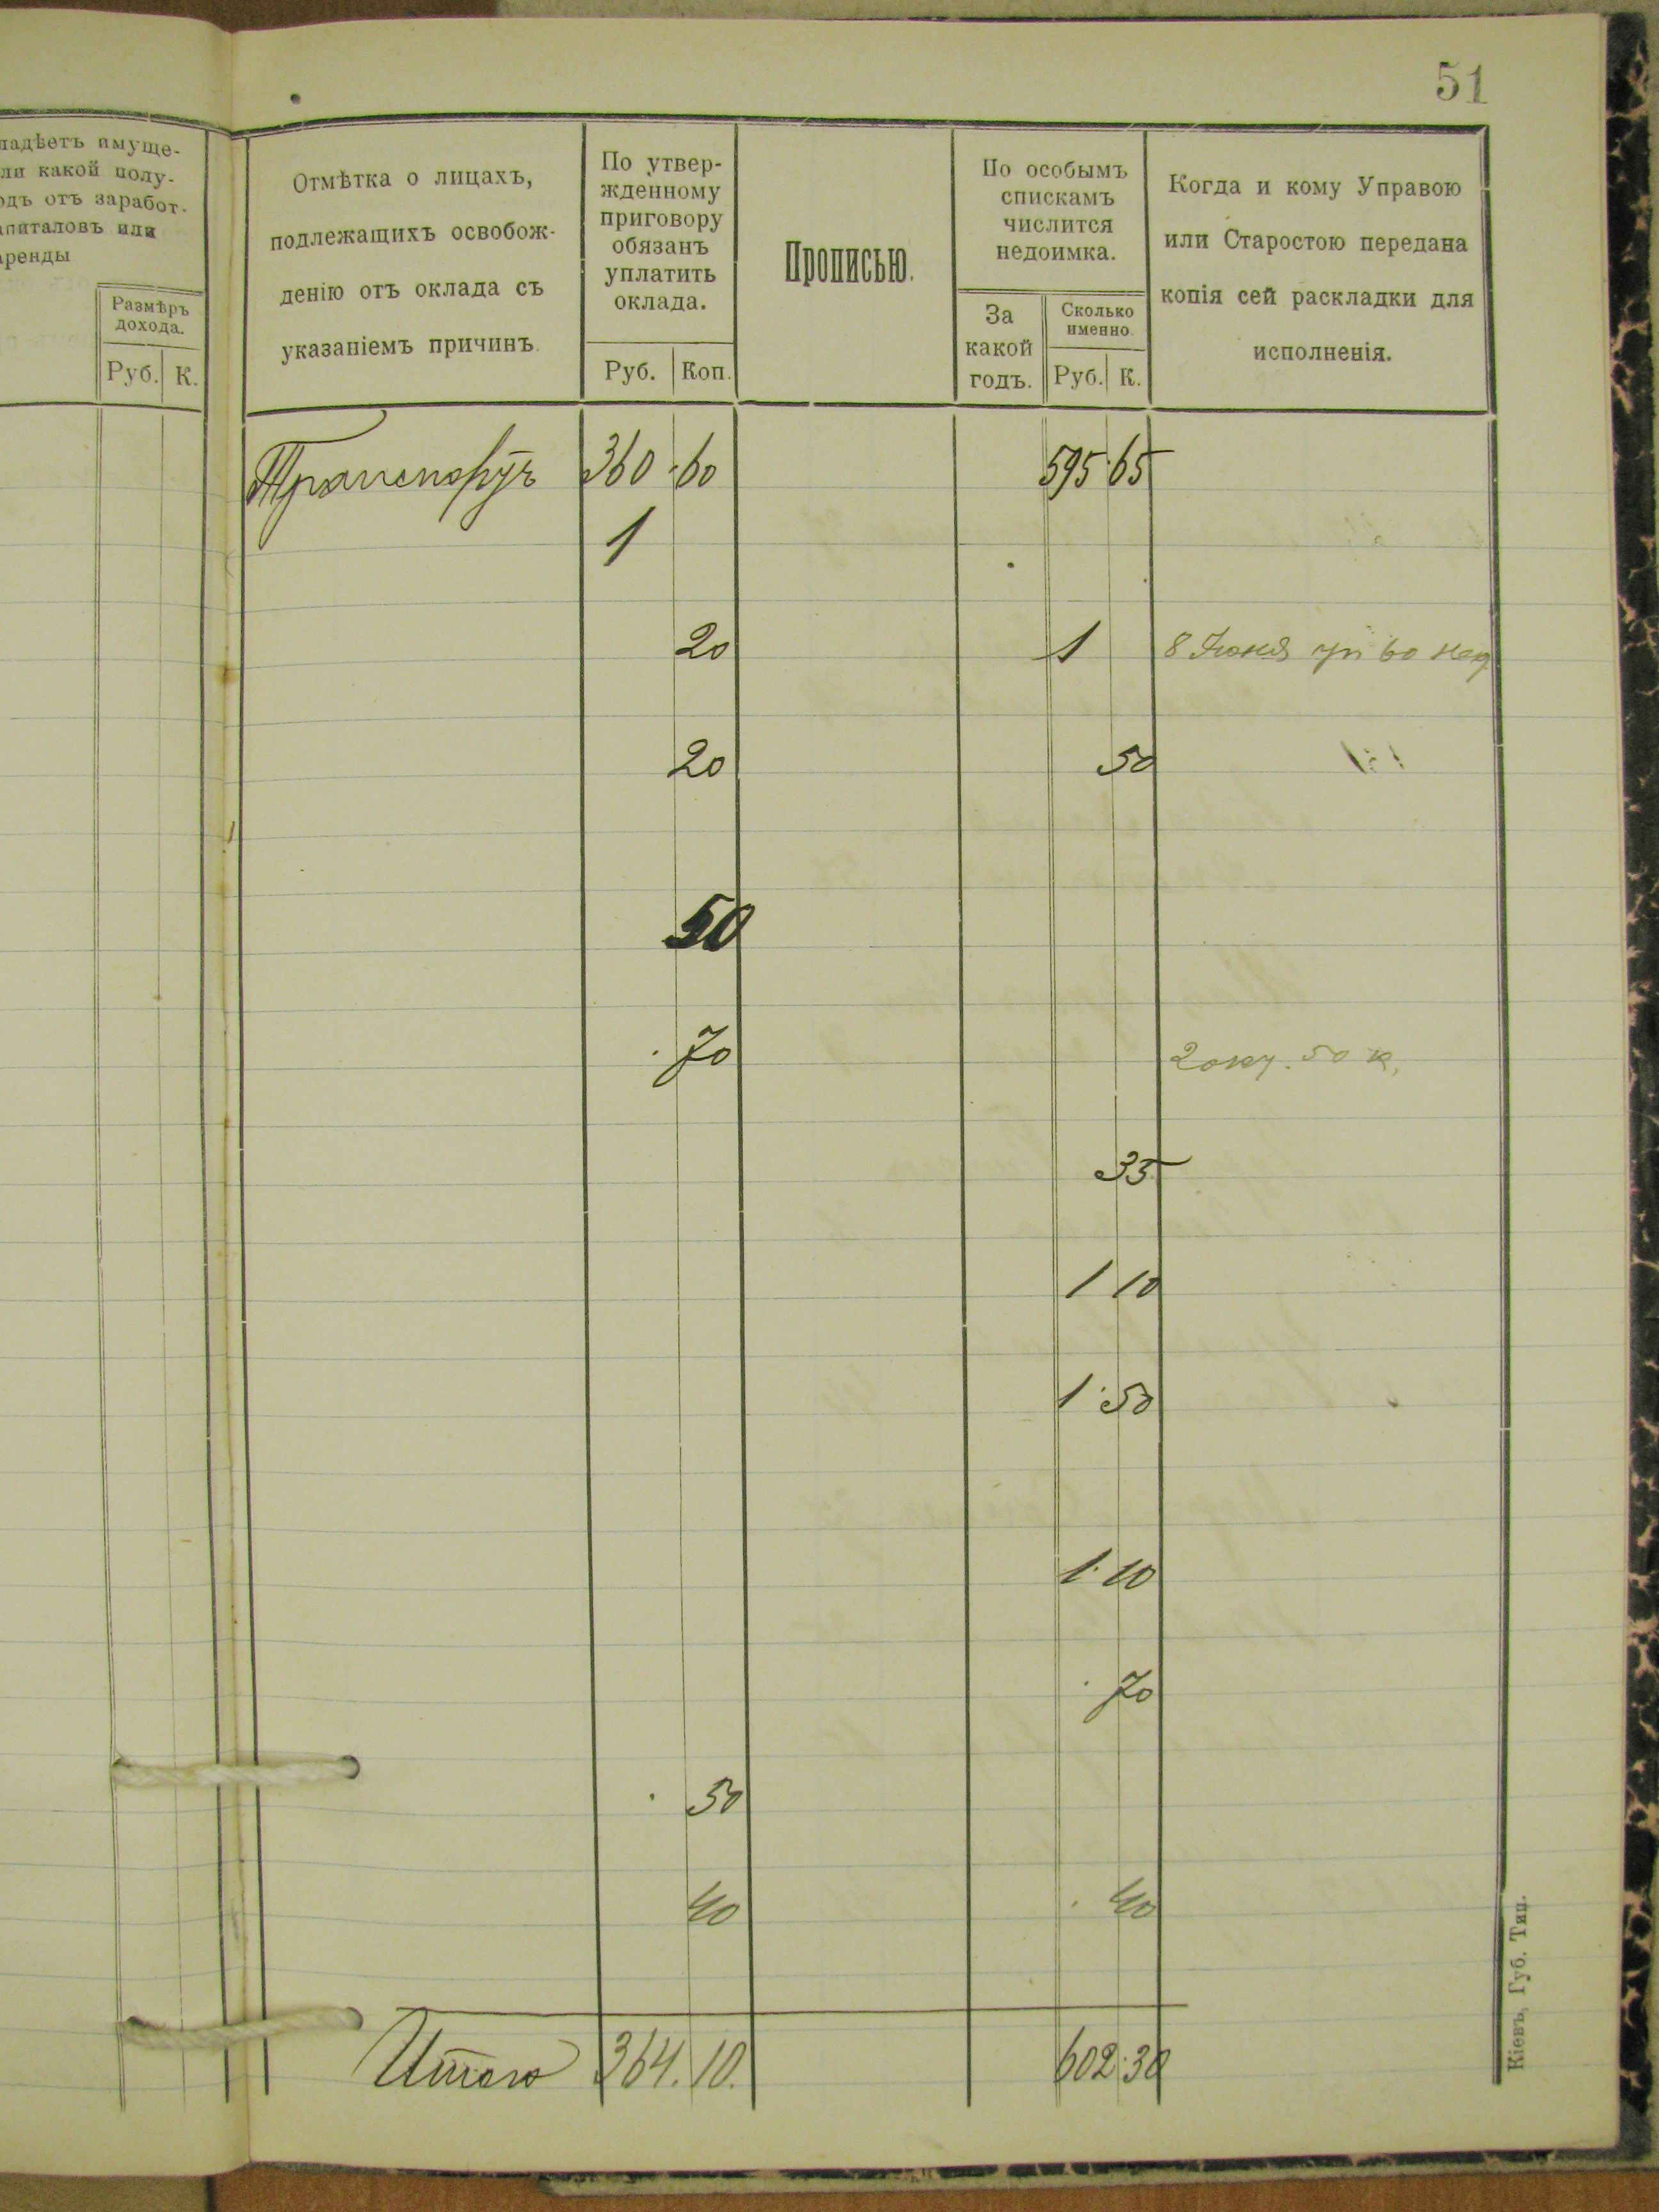 51
ладѣетъ имуще-
ли какой полу-
одъ отъ заработ-
апиталовъ или
аренды
Размѣръ
дохода.
Руб. К.
Отмѣтка о лицахъ,
подлежащихъ освобож-
денію отъ оклада съ
указаніемъ причинъ.
По утвер-
жденному
приговору
обязанъ
уплатить
оклада.
Руб. Коп.
Прописью.
По особымъ
спискамъ
числится
недоимка.
За
какой
годъ.
Сколько
именно.
Руб. К.
Когда и кому Управою
или Старостою передана
копія сей раскладки для
исполненія.
Транспортъ 360 60 595 65
1
20 1 8 Іюня 60
20 50
50
70 50 к.
35
1 10
1 50
1 10
70
50
40 40
Итого 364. 10. 602 30
Кіевъ, Губ. Тип.